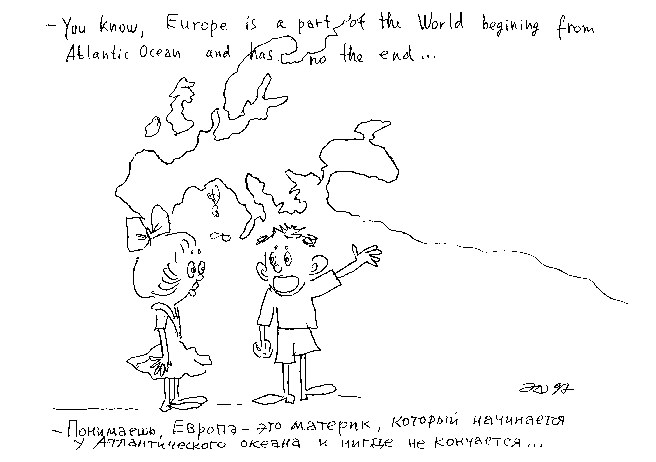 - You know, Europe is a part of the World begining from
Atlantic Ocean and has no the end...
- Понимаешь, Европа - это материк, который начинается
у Атлантического океана и нигде не кончается...